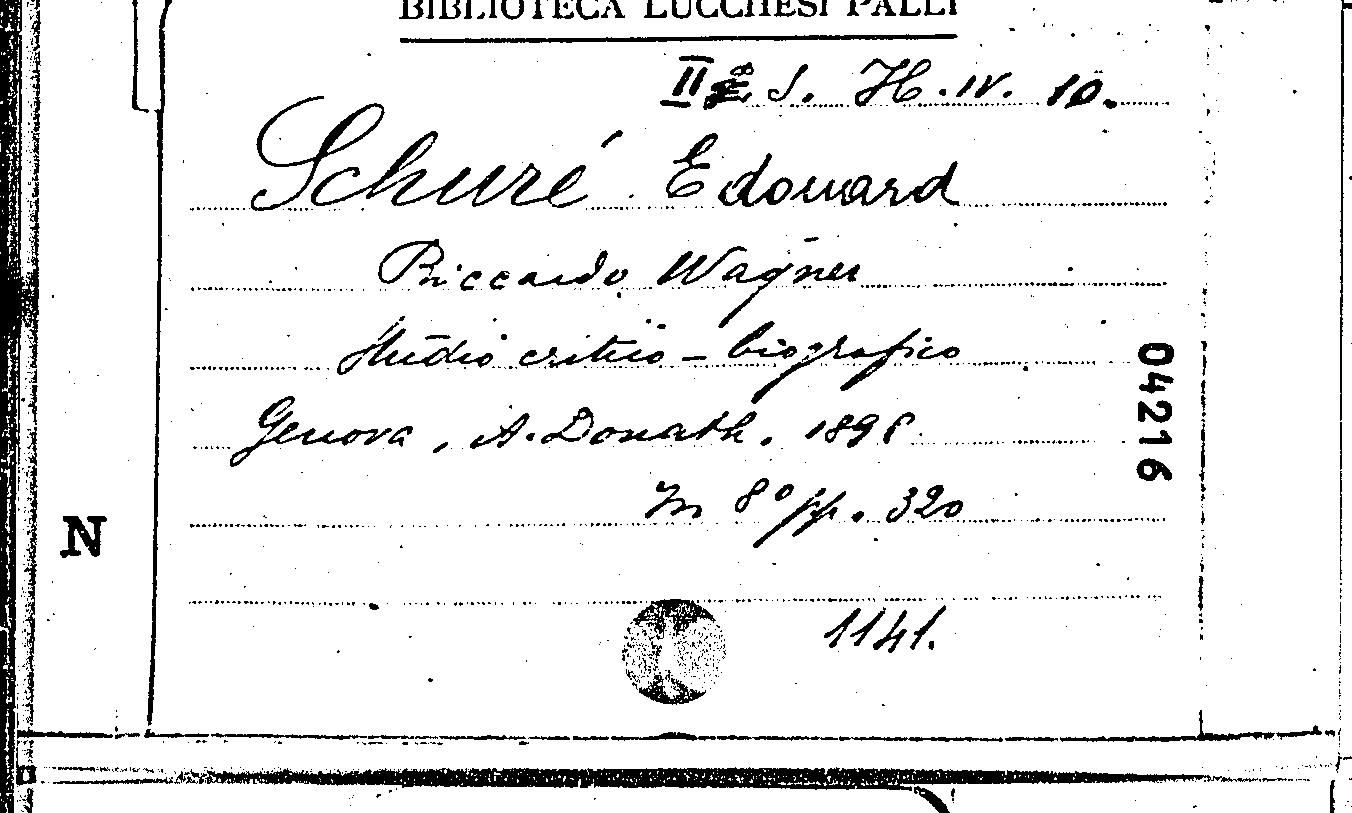 BIBLIOTECA LUCCHESI PALLI
II S. H. IV. 10.
Schuré Edouard
Riccardo Wagner
Studio critico - biografico
Genova, A. Donath. 1898
In 8° pp. 320
1141.
04216
N